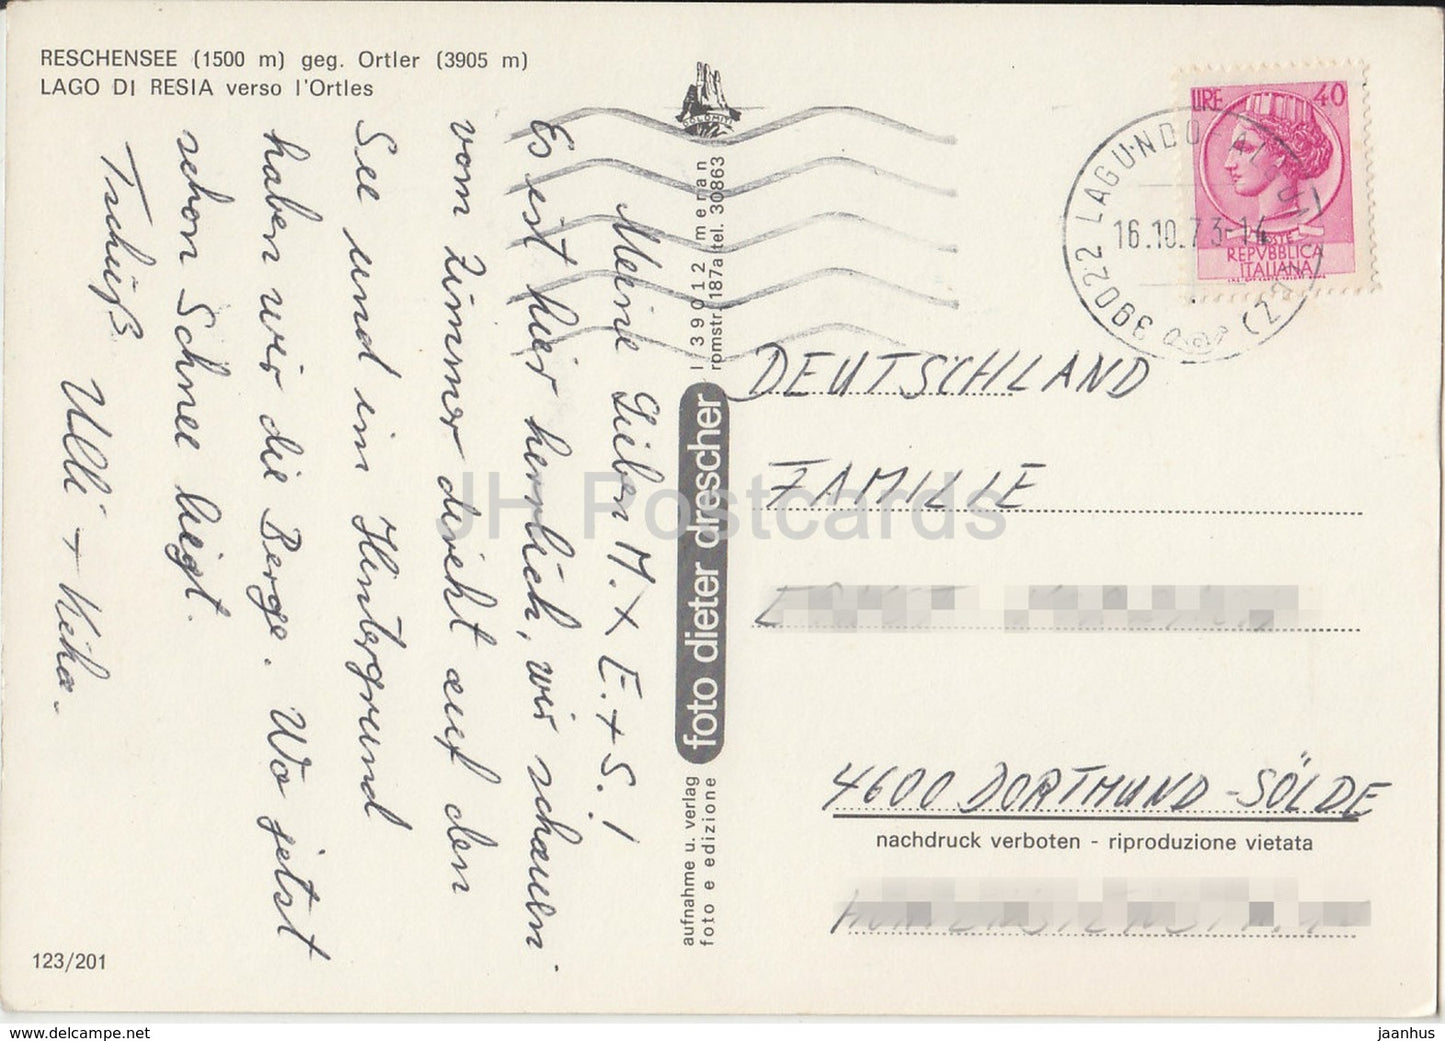 RESCHENSEE (1500 m) geg. Ortler (3905 m)
LAGO DI RESIA verso l'Ortles
Meine Lieben M. + E. + S.!
Es ist hier herrlich, wir schauen
vom Zimmer direkt auf den
See und im Hintergrund
haben wir die Berge. Wo jetzt
schon Schnee liegt.
Tschüß
Ulli +
123/201
DOLOMITI
I 39012 meran
romstr. 187a tel. 30863
foto dieter drescher
aufnahme u. verlag
foto e edizione
LIRE 40
POSTE
REPVBBLICA
ITALIANA
39022 LAGUNDO
16.10.73-14
(BZ)
DEUTSCHLAND
FAMILIE
4600 DORTMUND-SÖLDE
nachdruck verboten - riproduzione vietata
JH Postcards
www.delcampe.net
jaanhus